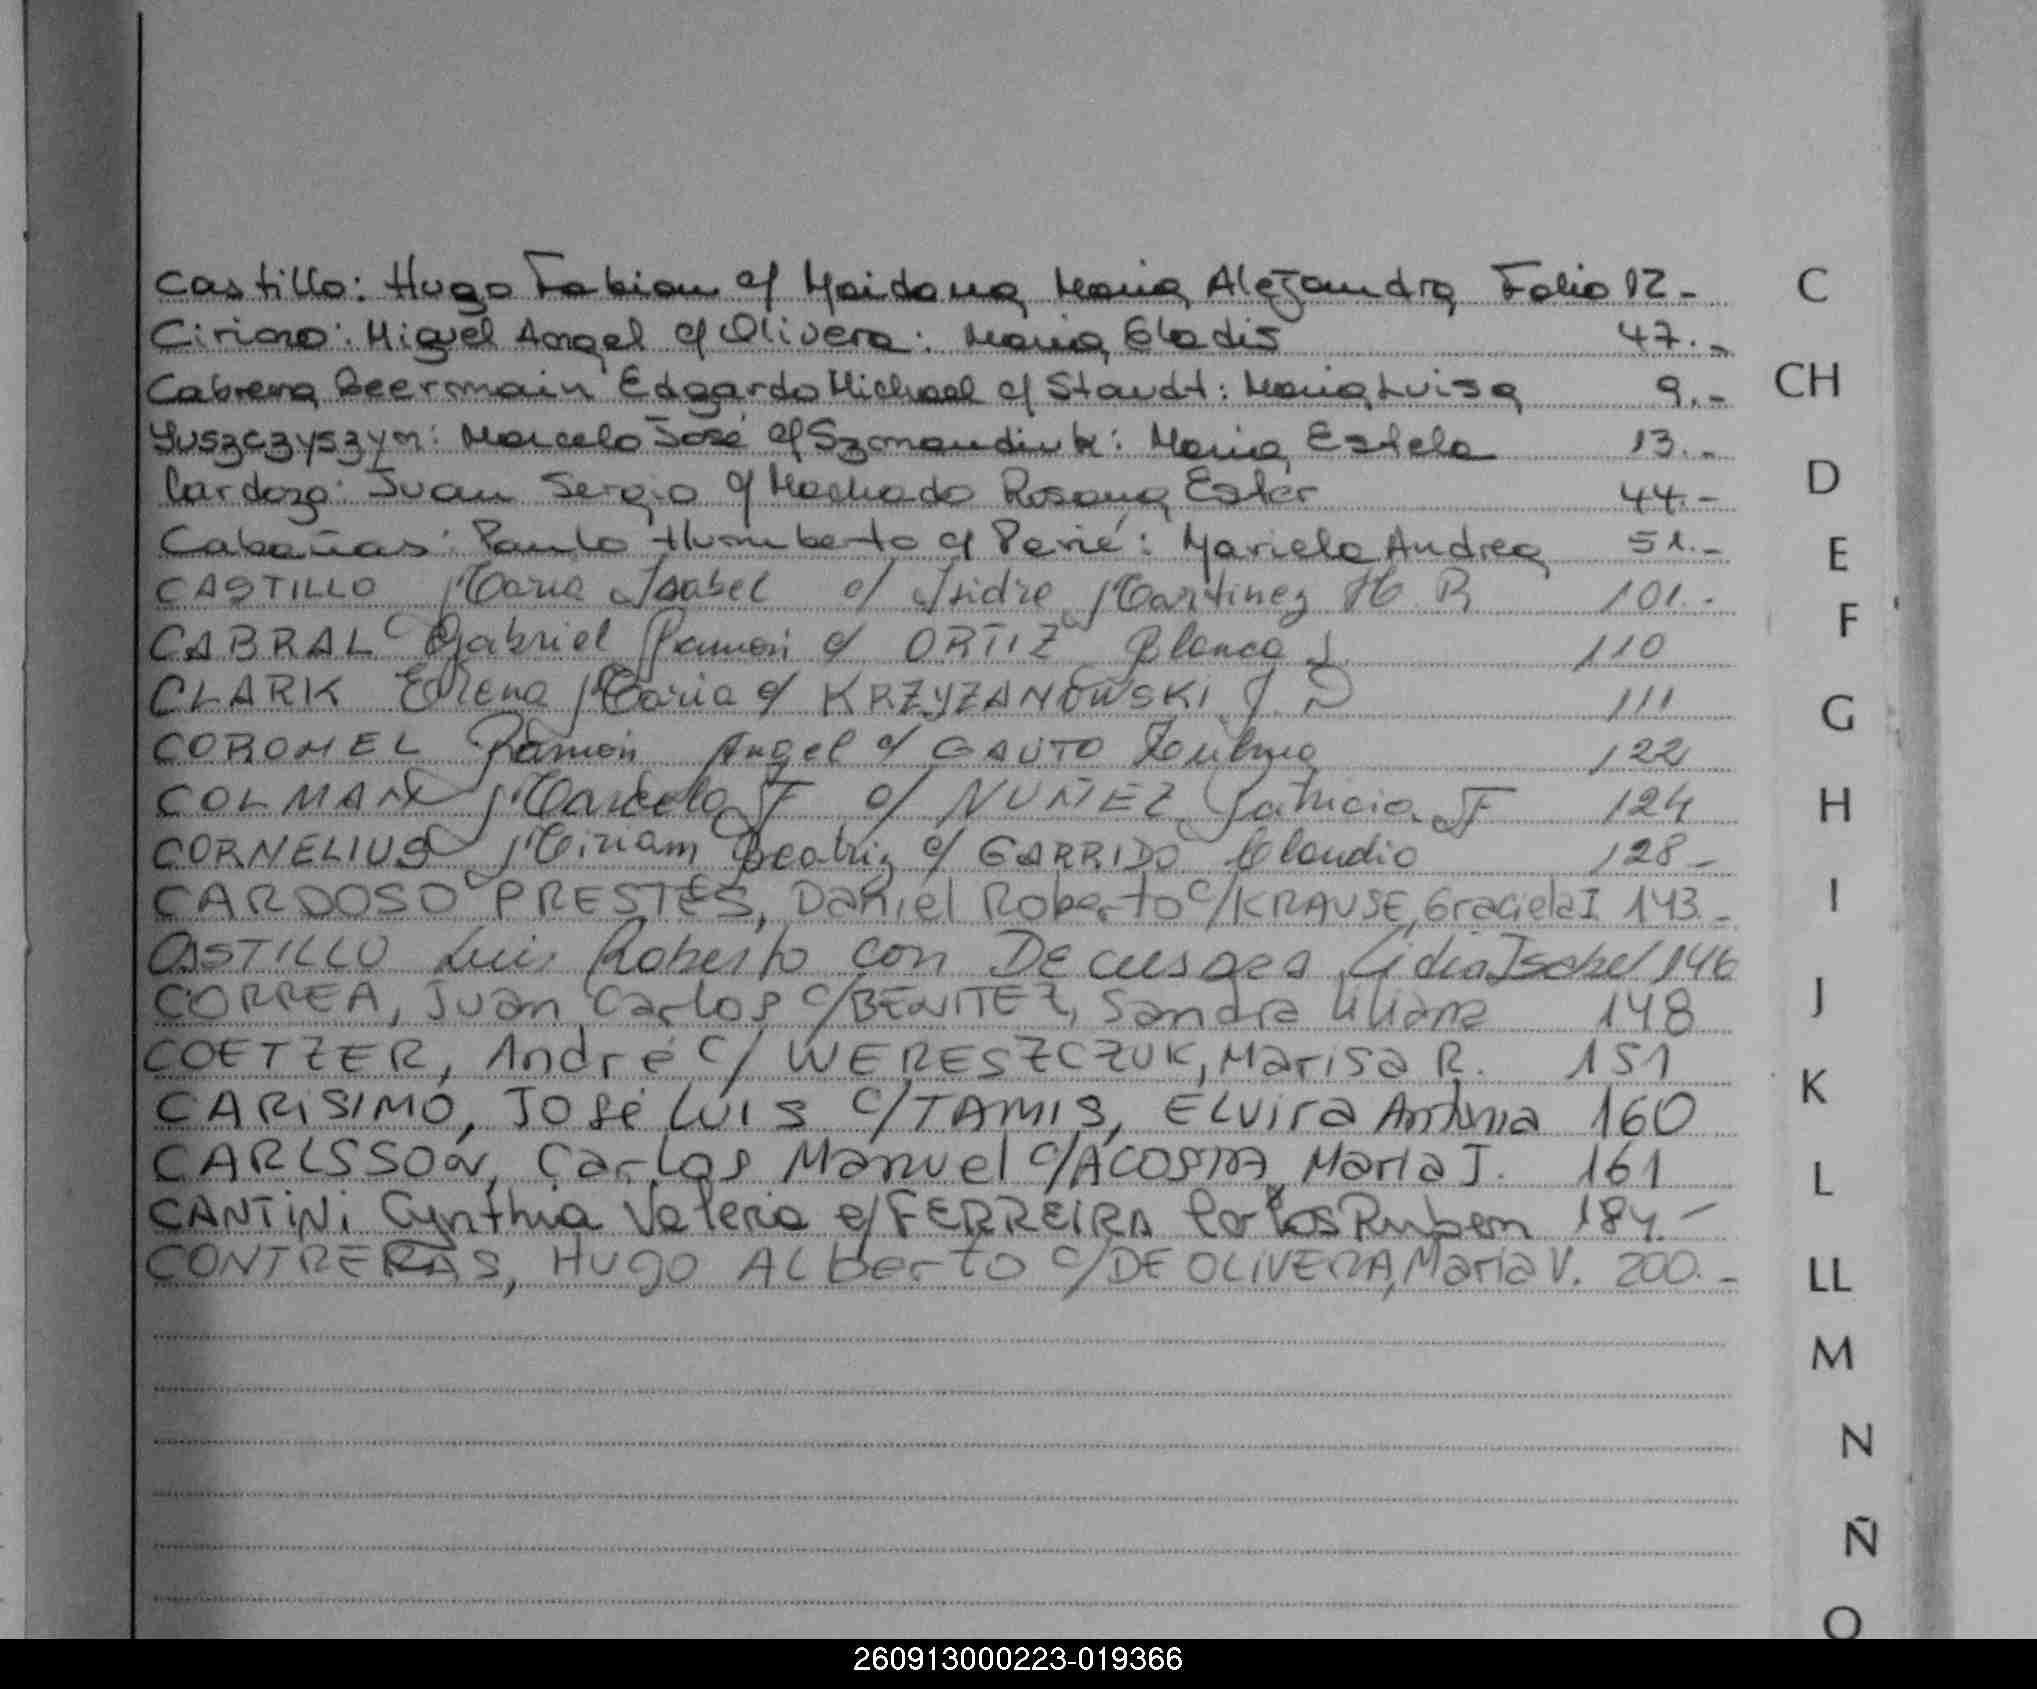 Castillo: Hugo Fabian c/ Maidana Maria Alejandra Folio 12.-
C
Ciriano: Miguel Angel c/ Olivera: Maria Gladis 47.-
Cabrera Beermain Edgardo Michael c/ Staudt: Maria Luisa 9.-
CH
Yuszczyszyn: Marcelo José c/ Szmandiuk: Maria Estela 13.-
Cardozo: Juan Sergio c/ Machado Rosana Ester 44.-
D
Cabañas: Paulo Humberto c/ Perié: Mariela Andrea 51.-
E
CASTILLO Maria Isabel c/ Isidre Martinez H. R 101.-
F
CABRAL Gabriel Ramon c/ ORTIZ Blanca I. 110
CLARK Elena Maria c/ KRZYZANOWSKI J. D 111
G
CORONEL Ramon Angel c/ GAUTO Zulma 122
COLMAN Marcelo F c/ NUÑEZ Patricia F 124
H
CORNELIUS Miriam Beatriz c/ GARRIDO Claudio 128-
CARDOSO PRESTES, Daniel Roberto c/KRAUSE, Graciela I 143.-
I
CASTILLO Luis Roberto con De Lidia Isabel 146
CORREA, Juan Carlos c/BENITEZ, Sandra Liliana 148
J
COETZER, André c/ WERESZCZUK, Marisa R. 151
K
CARISIMO, José Luis c/TAMIS, Elvira Antonia 160
CARLSSON, Carlos Manuel c/ACOSTA, Maria J. 161
L
CANTINI Cynthia Valeria c/FERREIRA Carlos Ruben 184.-
CONTRERAS, Hugo Alberto c/DE OLIVERA, Maria V. 200.-
LL
M
N
Ñ
O
260913000223-019366